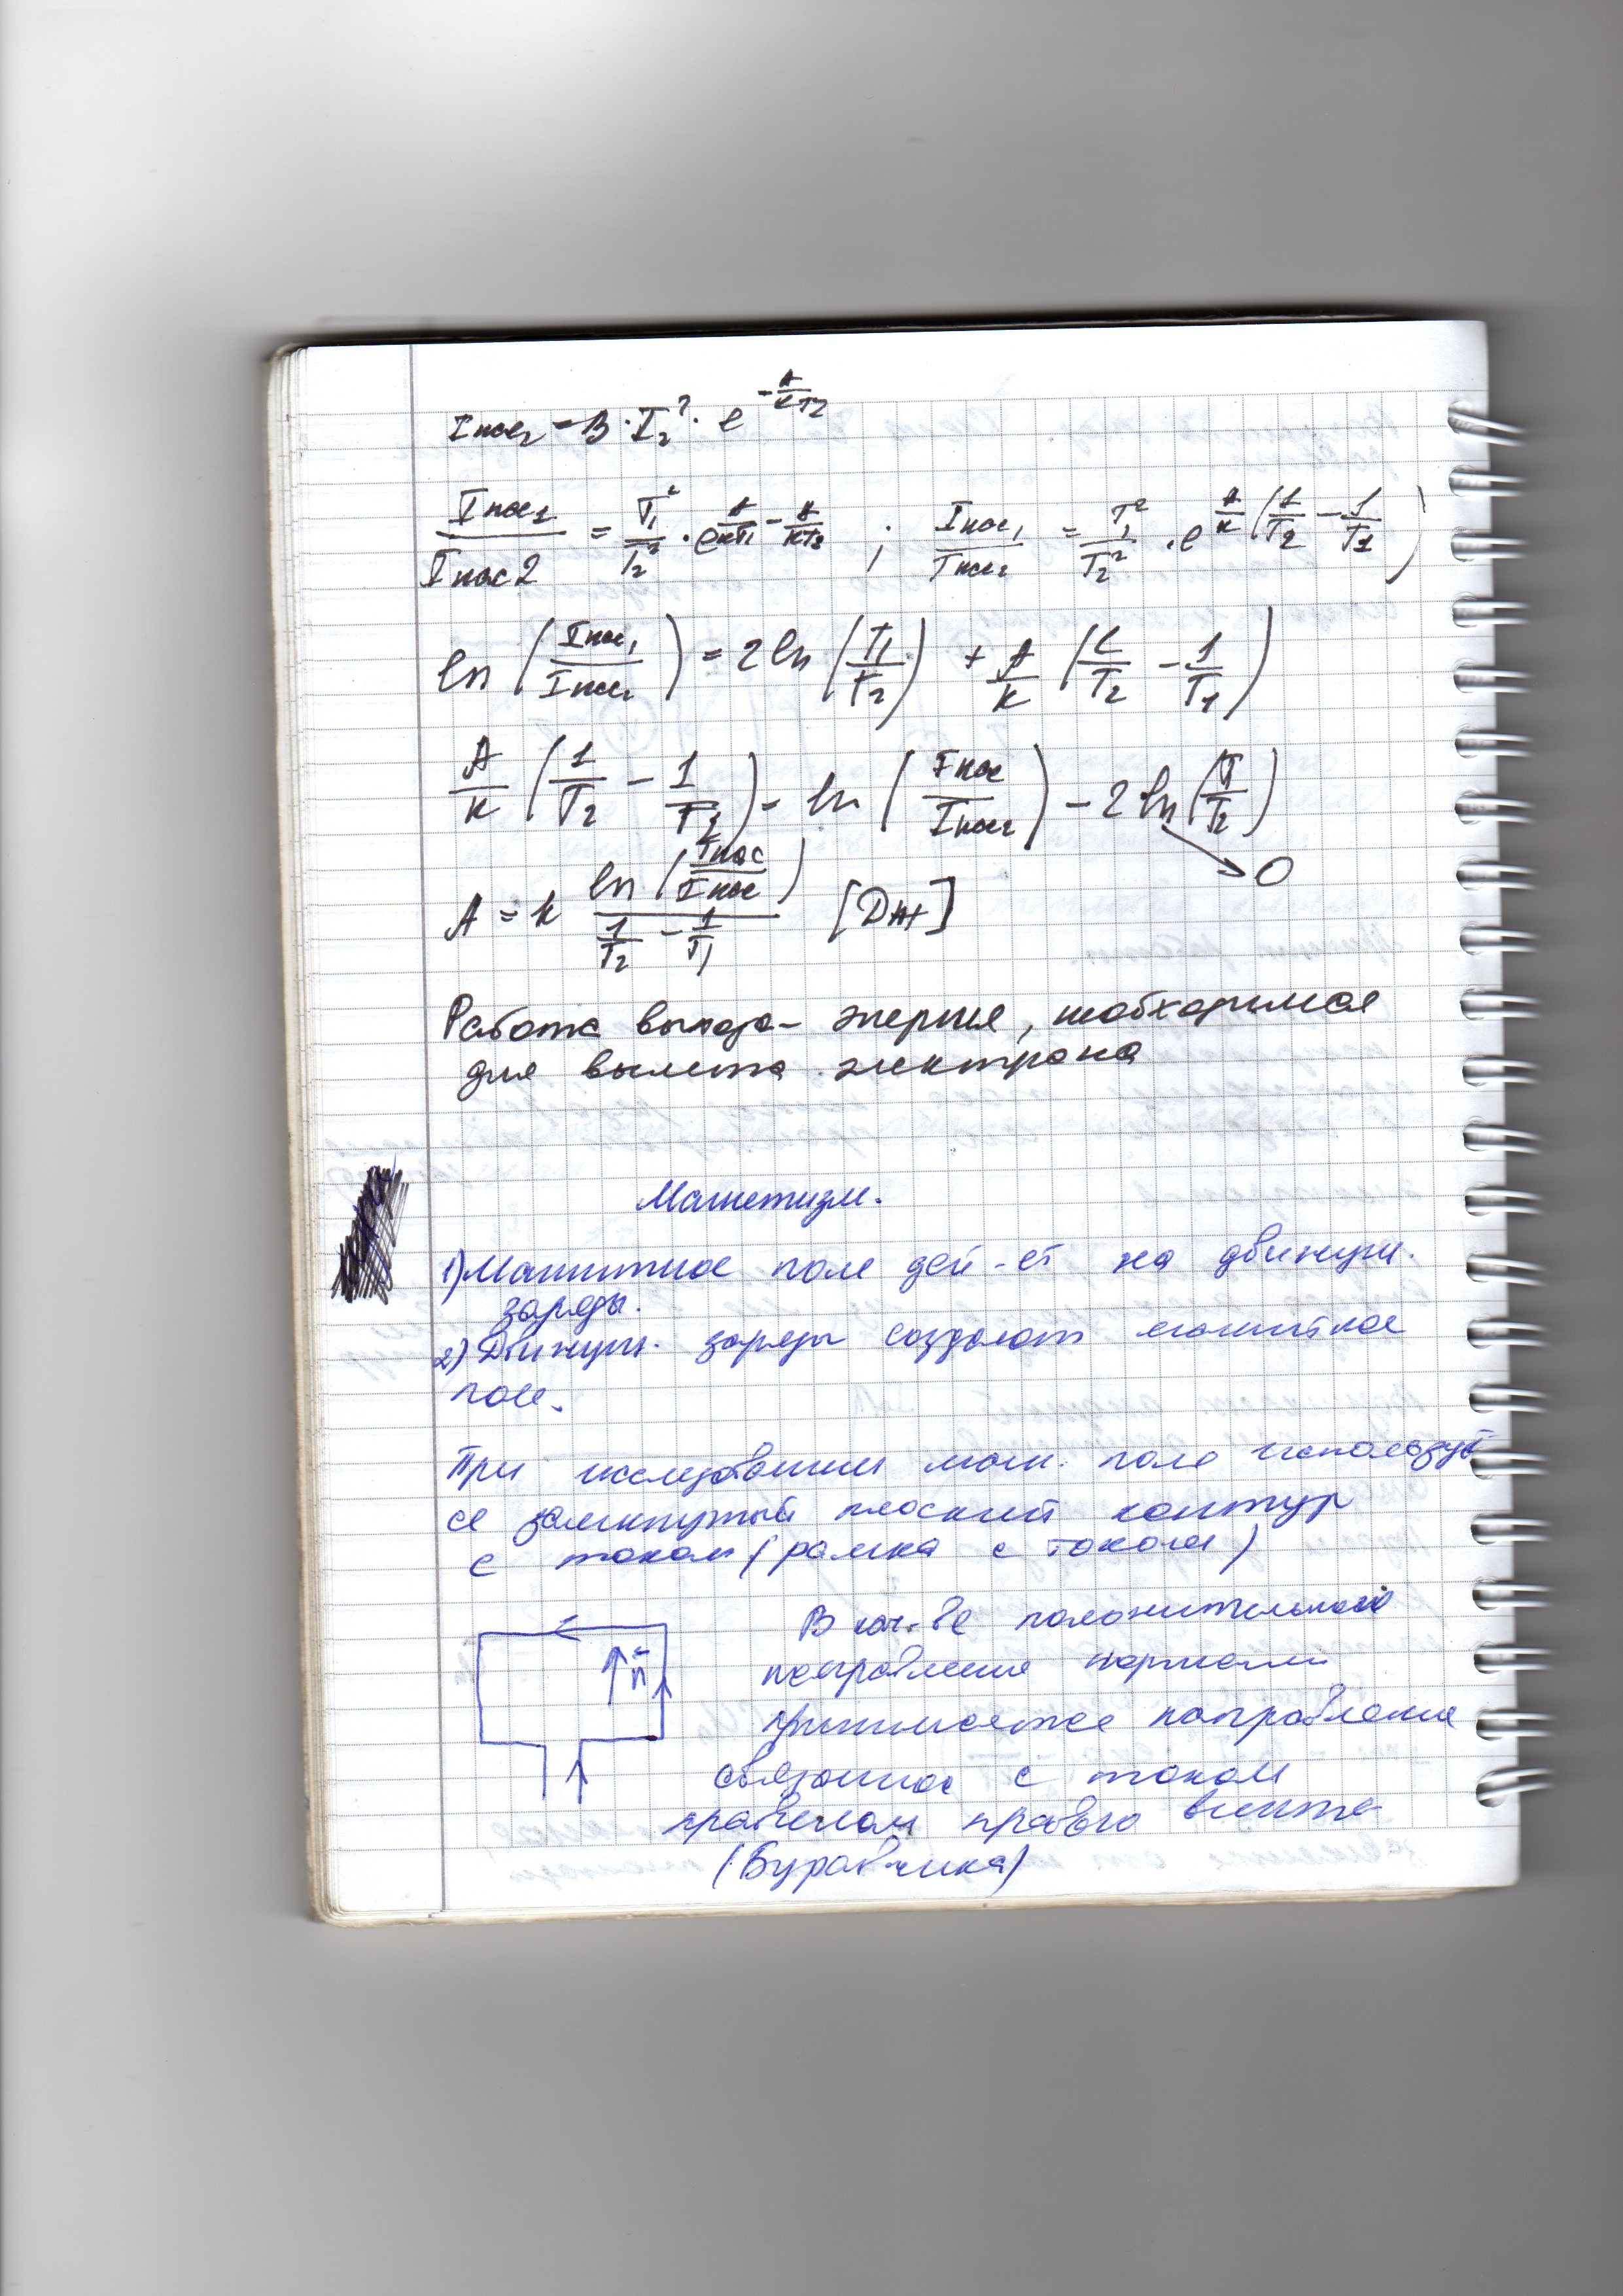 Iнас₂ = B · I₂² · e^(-A/kT₂)
Iнас1/Iнас2 = T₁²/T₂² · e^(A/kT₁ - A/kT₂) ; Iнас₁/Iнас₂ = T₁²/T₂² · e^(A/k (1/T₂ - 1/T₁))
ln (Iнас₁/Iнас₂) = 2 ln (T₁/T₂) + A/k (1/T₂ - 1/T₁)
A/k (1/T₂ - 1/T₁) = ln (Iнас/Iнас₂) - 2 ln (T/T₂) → 0
A = k ln (Iнас/Iнас) / (1/T₂ - 1/T₁) [Дж]
Работа выхода - энергия, необходимая
для вылета электрона
Магнетизм.
1) Магнитное поле дей-ет на движущ.
заряды.
2) Движущ. заряды создают магнитное
поле.
При исследовании магн. поля использует
ся замкнутый плоский контур
с током (рамка с током)
n
В кач-ве положительного
направления нормали
принимается направление
связанное с током
правилом правого винта
(Буравчика)